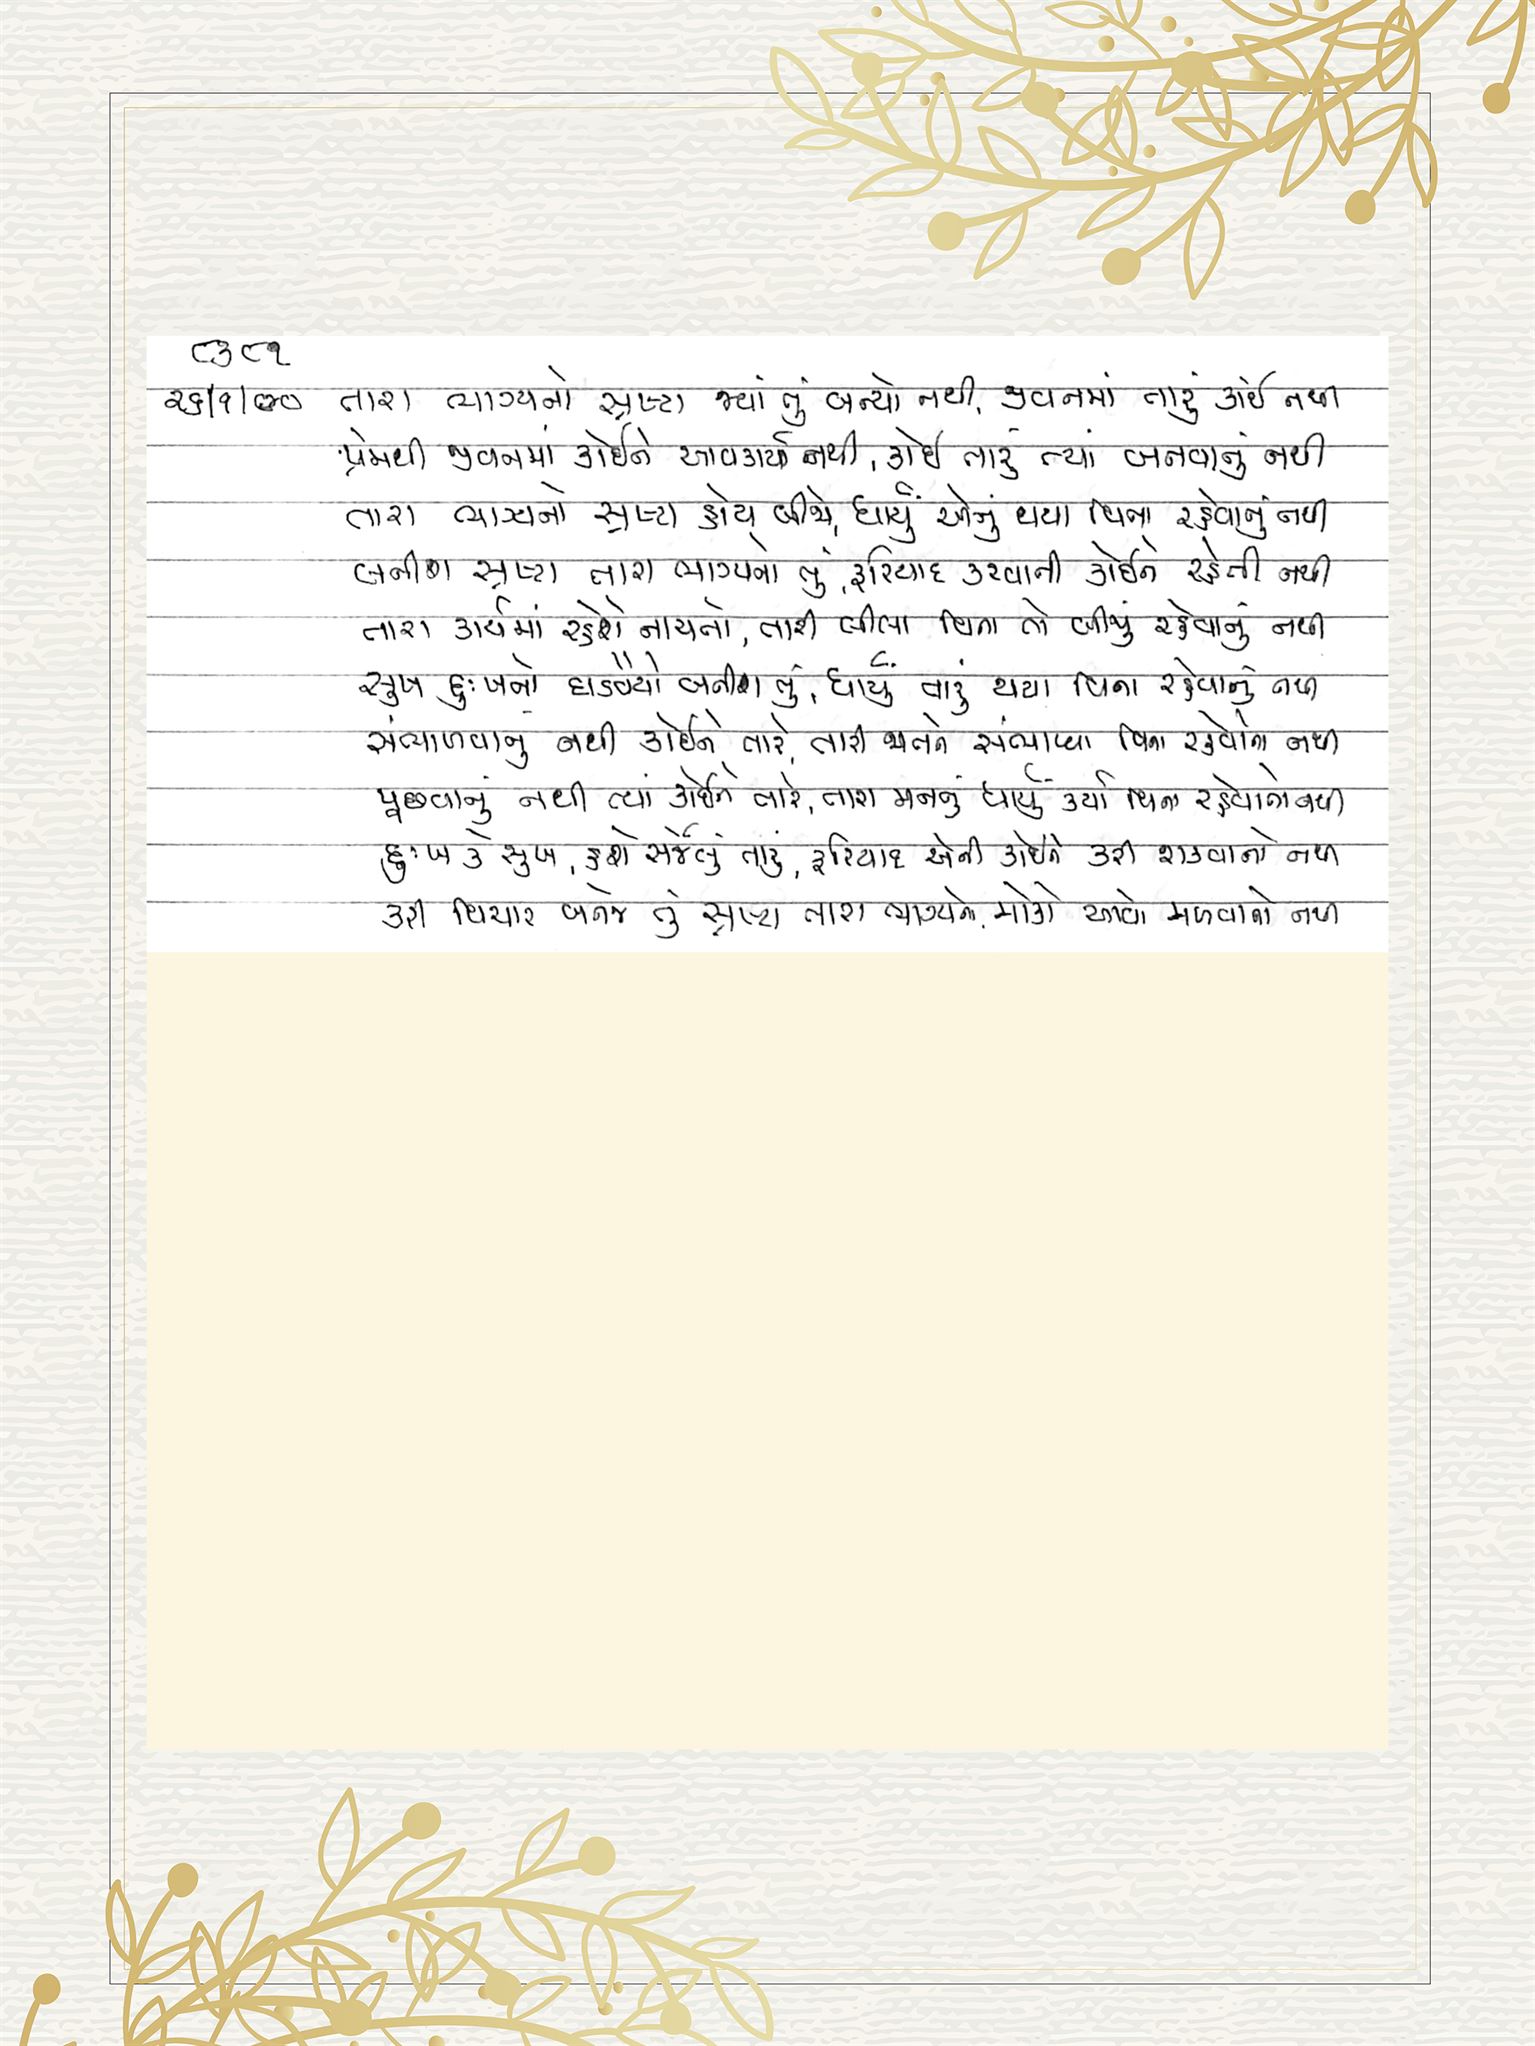 ૮૩૮૧
૨૬/૧/૦૦ તારા ભાગ્યનો સ્રષ્ટા જ્યાં તું બન્યો નથી, જીવનમાં તારું કોઈ નથી
પ્રેમથી જીવનમાં કોઈને આવકાર્યા નથી, કોઈ તારું ત્યાં બનવાનું નથી
તારા ભાગ્યનો સ્રષ્ટા હોય બીજો, ધાર્યું એનું થયા વિના રહેવાનું નથી
બનીશ સ્રષ્ટા તારા ભાગ્યનો તું, ફરિયાદ કરવાની કોઈને રહેતી નથી
તારા કાર્યમાં રહેશે નાચતો, તારી લીલા વિના તો બીજું રહેવાનું નથી
સુખ દુઃખનો ઘડવૈયો બનીશ તું, ધાર્યું તારું થયા વિના રહેવાનું નથી
સંભાળવાનું નથી કોઈને તારે, તારી જાતને સંભાળ્યા વિના રહેવાનો નથી
પૂછવાનું નથી ત્યાં કોઈને તારે, તારા મનનું ધાર્યું કર્યા વિના રહેવાનો નથી
દુઃખ કે સુખ, હશે સર્જેલું તારું, ફરિયાદ એની કોઈને કરી શકવાનો નથી
કરી વિચાર બનજે તું સ્રષ્ટા તારા ભાગ્યનો, મોકો આવો મળવાનો નથી